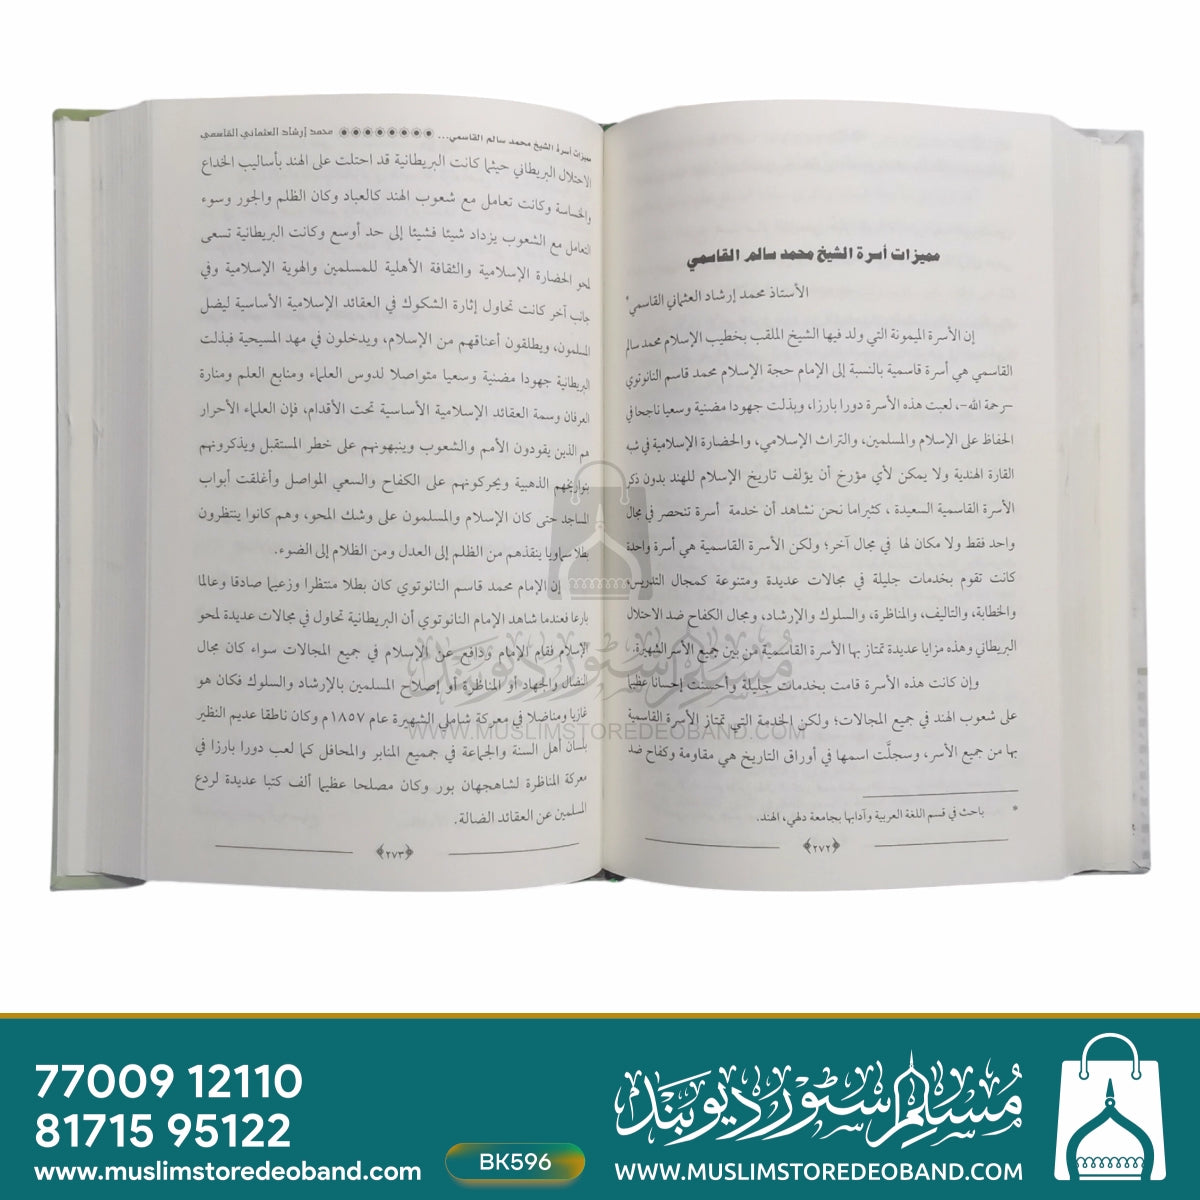 مميزات أسرة الشيخ محمد سالم القاسمي
الأستاذ محمد إرشاد العثماني القاسمي*
إن الأسرة الميمونة التي ولد فيها الشيخ الملقب بخطيب الإسلام محمد سالم
القاسمي هي أسرة قاسمية بالنسبة إلى الإمام حجة الإسلام محمد قاسم النانوتوي
-رحمة الله-، لعبت هذه الأسرة دورا بارزا، وبذلت جهودا مضنية وسعيا ناجحا في
الحفاظ على الإسلام والمسلمين، والتراث الإسلامي، والحضارة الإسلامية في شبه
القارة الهندية ولا يمكن لأي مؤرخ أن يؤلف تاريخ الإسلام للهند بدون ذكر
الأسرة القاسمية السعيدة ، كثيراما نحن نشاهد أن خدمة أسرة تنحصر في مجال
واحد فقط ولا مكان لها في مجال آخر؛ ولكن الأسرة القاسمية هي أسرة واحدة
كانت تقوم بخدمات جليلة في مجالات عديدة ومتنوعة كمجال التدريس،
والخطابة، والتاليف، والمناظرة، والسلوك والإرشاد، ومجال الكفاح ضد الاحتلال
البريطاني وهذه مزايا عديدة تمتاز بها الأسرة القاسمية من بين جميع الأسر الشهيرة.
وإن كانت هذه الأسرة قامت بخدمات جليلة وأحسنت إحسانا عظيما
على شعوب الهند في جميع المجالات؛ ولكن الخدمة التي تمتاز الأسرة القاسمية
بها من جميع الأسر، وسجلَّت اسمها في أوراق التاريخ هي مقاومة وكفاح ضد
* باحث في قسم اللغة العربية وآدابها بجامعة دلهي، الهند.
﴿٢٧٢﴾
مميزات أسرة الشيخ محمد سالم القاسمي... محمد إرشاد العثماني القاسمي
الاحتلال البريطاني حيثما كانت البريطانية قد احتلت على الهند بأساليب الخداع
والخساسة وكانت تعامل مع شعوب الهند كالعباد وكان الظلم والجور وسوء
التعامل مع الشعوب يزداد شيئا فشيئا إلى حد أوسع وكانت البريطانية تسعى
لمحو الحضارة الإسلامية والثقافة الأهلية للمسلمين والهوية الإسلامية وفي
جانب آخر كانت تحاول إثارة الشكوك في العقائد الإسلامية الأساسية ليضل
المسلمون، ويطلقون أعناقهم من الإسلام، ويدخلون في مهد المسيحية فبذلت
البريطانية جهودا مضنية وسعيا متواصلا لدوس العلماء ومنابع العلم ومنارة
العرفان وسمة العقائد الإسلامية الأساسية تحت الأقدام، فإن العلماء الأحرار
هم الذين يقودون الأمم والشعوب وينبهونهم على خطر المستقبل ويذكرونهم
بتواريخهم الذهبية ويحركونهم على الكفاح والسعي المواصل وأغلقت أبواب
المساجد حتى كان الإسلام والمسلمون على وشك المحو، وهم كانوا ينتظرون
بطلا سماويا ينقذهم من الظلم إلى العدل ومن الظلام إلى الضوء.
إن الإمام محمد قاسم النانوتوي كان بطلا منتظرا وزعيما صادقا وعالما
بارعا فعندما شاهد الإمام النانوتوي أن البريطانية تحاول في مجالات عديدة لمحو
الإسلام فقام الإمام ودافع عن الإسلام في جميع المجالات سواء كان مجال
النضال والجهاد أو المناظرة أو إصلاح المسلمين بالإرشاد والسلوك فكان هو
غازيا ومناضلا في معركة شاملي الشهيرة عام ١٨٥٧م وكان ناطقا عديم النظير
بلسان أهل السنة والجماعة في جمميع المنابر والمحافل كما لعب دورا بارزا في
معركة المناظرة لشاهجهان بور وكان مصلحا عظيما ألف كتبا عديدة لردع
المسلمين عن العقائد الضالة.
﴿٢٧٣﴾
مسلم سٹور دیوبند
WWW.MUSLIMSTOREDEOBAND.COM
77009 12110
81715 95122
www.muslimstoredeoband.com
BK596
مسلم سٹور دیوبند
WWW.MUSLIMSTOREDEOBAND.COM